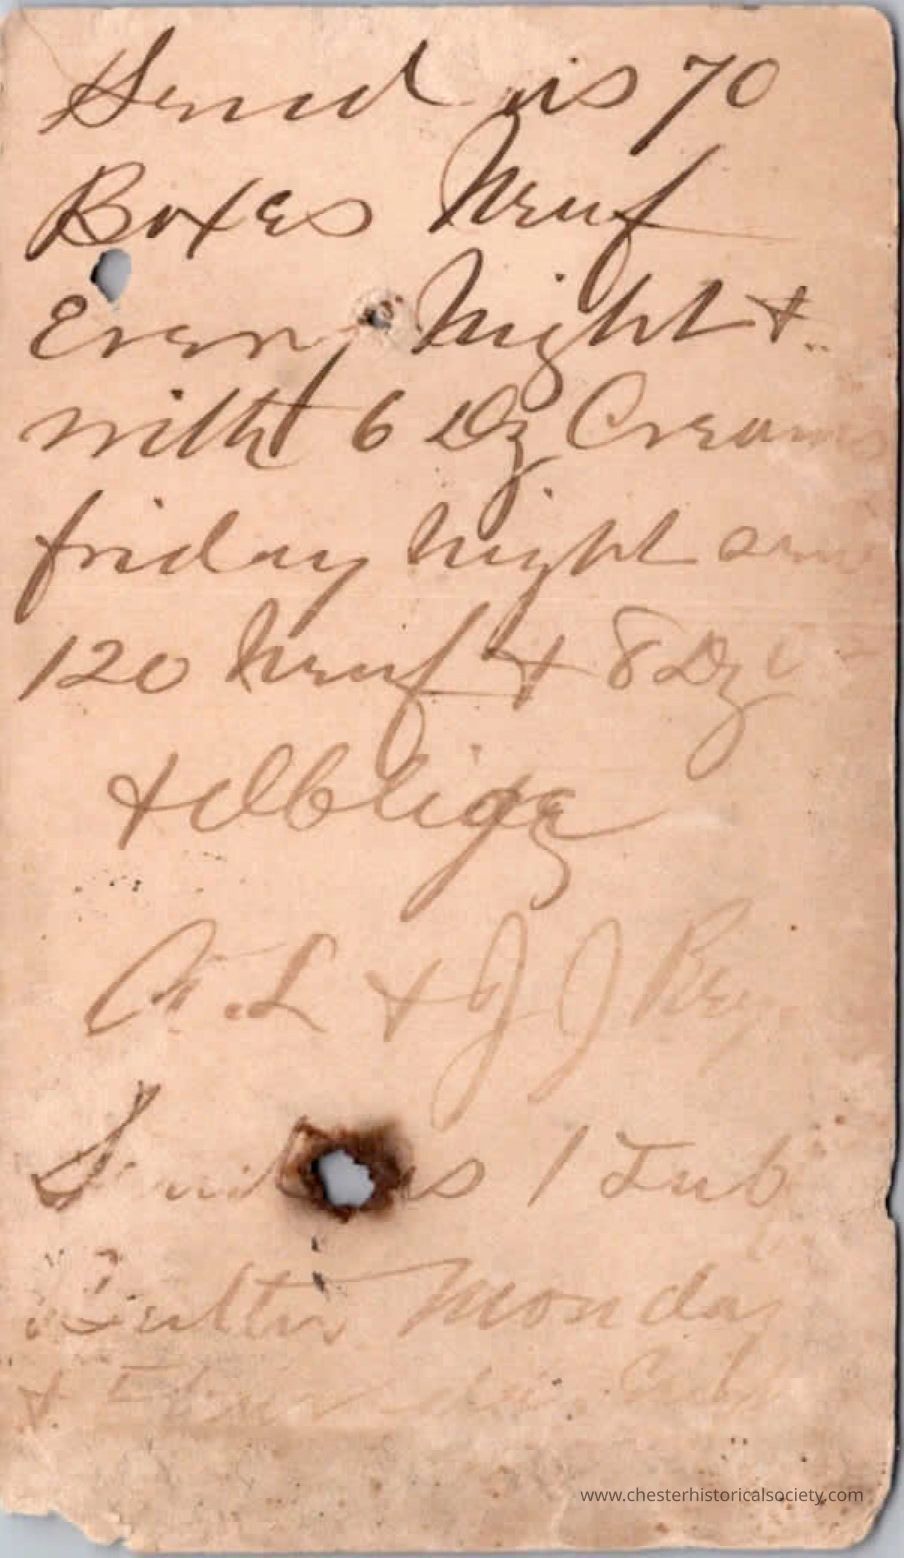 Send us 70
Boxes Neuf
Every Night +
with 6 Dz Creams
friday night and
120 Neuf + 8 Dz
+ Oblige
A. L + J J
Send us 1 Tub
Butter Monday
+
www.chesterhistoricalsociety.com